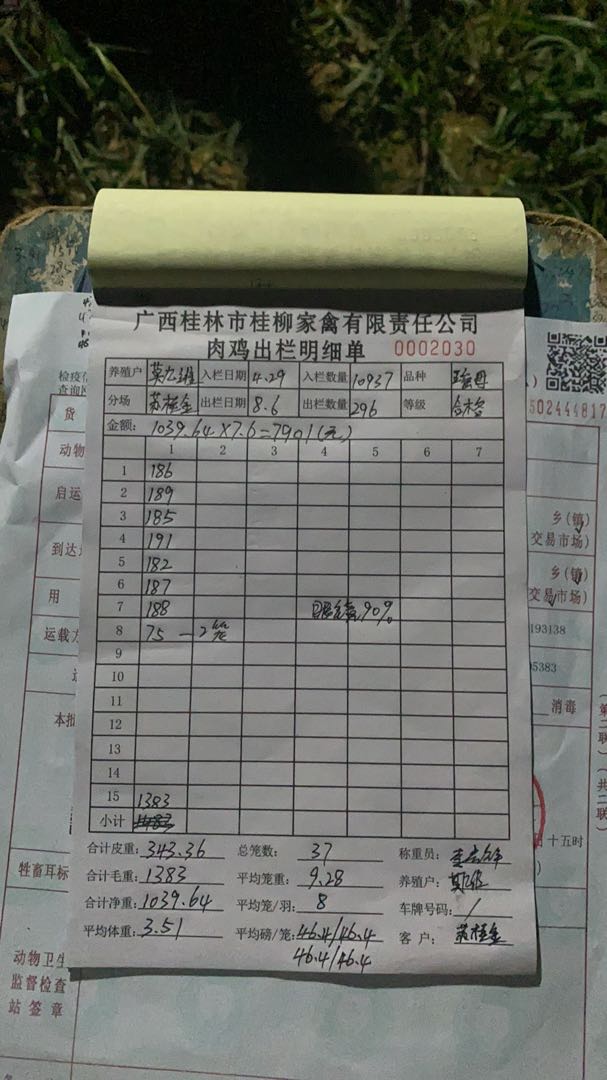 广西桂林市桂柳家禽有限责任公司
肉鸡出栏明细单 0002030
养殖户 入栏日期 4.29 入栏数量 10937 品种
分场 苏桂金 出栏日期 8.6 出栏数量 296 等级 合格
金额: 1039.64×7.6=7901(元)
1 2 3 4 5 6 7
1 186
2 189
3 185
4 191
5 182
6 187
7 188 90%
8 75 —2笼
9
10
11
12
13
14
15 1383
小计
合计皮重: 343.36 总笼数: 37 称重员:
合计毛重: 1383 平均笼重: 9.28 养殖户:
合计净重: 1039.64 平均笼/羽: 8 车牌号码: /
平均体重: 3.51 平均磅/笼: 46.4/46.4 客户: 苏桂金
46.4/46.4
检疫
查询
货
动物
启运
到达
用
运载方
本批
牲畜耳标
动物卫生
监督检查
站签章
502444817
乡(镇)
交易市场)
乡(镇)
交易市场)
193138
5383
消毒
十五时
(第二联)
(共二联)